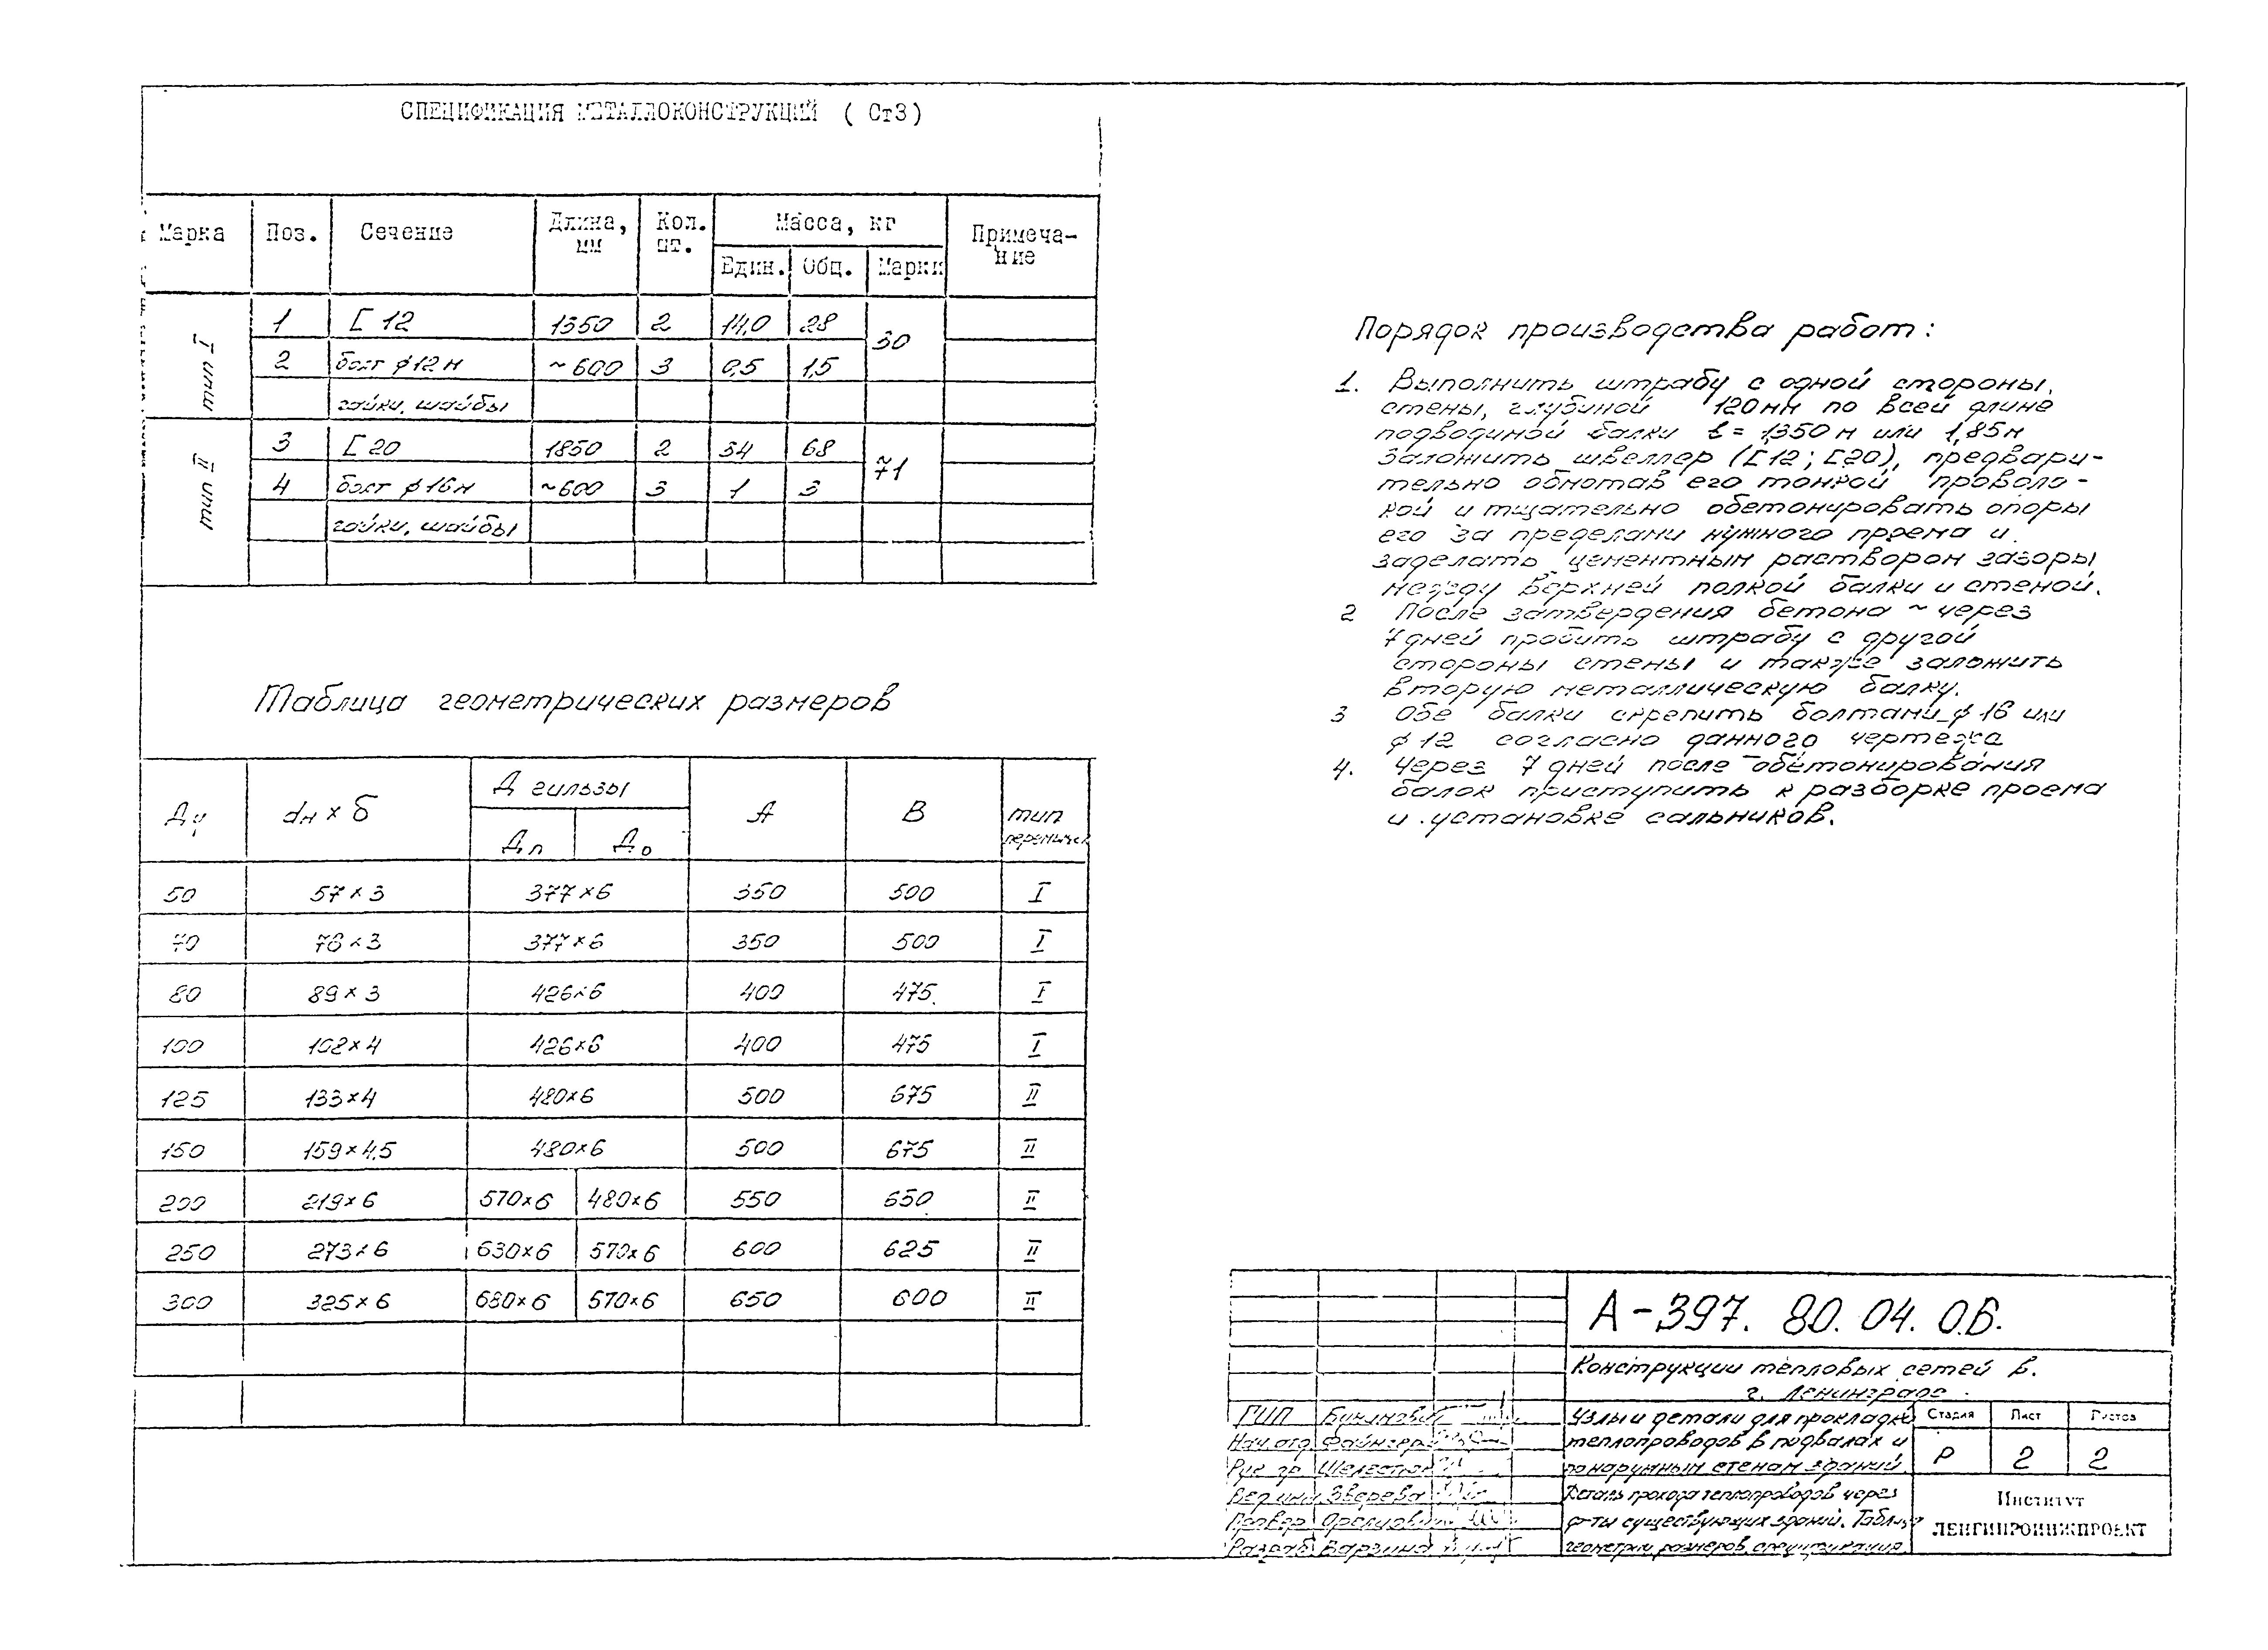 СПЕЦИФИКАЦИЯ МЕТАЛЛОКОНСТРУКЦИЙ ( Ст3)
Марка Поз. Сечение Длина, мм Кол. шт. Масса, кг Примеча-ние
Един. Общ. Марки
Тип I
1 [ 12 1350 2 14,0 28 30
2 болт ф12м ~600 3 0,5 1,5
гайки, шайбы
Тип II
3 [ 20 1850 2 34 68 ~71
4 болт ф16м ~600 3 1 3
гайки, шайбы
Таблица геометрических размеров
Ду dн х б Д гильзы А В тип перемычк
Дп До
50 57×3 377×6 350 500 I
70 76×3 377×6 350 500 I
80 89×3 426×6 400 475 I
100 108×4 426×6 400 475 I
125 133×4 480×6 500 675 II
150 159×4,5 480×6 500 675 II
200 219×6 570×6 480×6 550 650 II
250 273×6 630×6 570×6 600 625 II
300 325×6 680×6 570×6 650 600 II
Порядок производства работ:
1. Выполнить штрабу с одной стороны,
стены, глубиной 120мм по всей длине
подводимой балки ℓ = 1,350 м или 1,85м
Заложить швеллер ([12; [20), предвари-
тельно обмотав его тонкой проволо-
кой и тщательно обетонировать опоры
его за пределами нужного проема и
заделать цементным раствором зазоры
между верхней полкой балки и стеной.
2 После затвердения бетона ~ через
7 дней пробить штрабу с другой
стороны стены и также заложить
вторую металлическую балку.
3 Обе балки скрепить болтами ф 16 или
ф 12 согласно данного чертежа
4. Через 7 дней после обетонирования
балок приступить к разборке проема
и установке сальников.
А-397. 80. 04. О.В.
Конструкции тепловых сетей в
г. Ленинграде
Узлы и детали для прокладке
теплопроводов в подвалах и
по наружным стенам зданий.
Стадия Лист Листов
Р 2 2
Деталь прохода теплопроводов через
ф-ты существующих зданий. Таблица
геометрич размеров, спецификация.
Институт
ЛЕНГИПРОИНЖПРОЕКТ
ГИП
Нач. отд
Рук. гр.
Вед. инж Зверева
Провер
Разраб Варзина